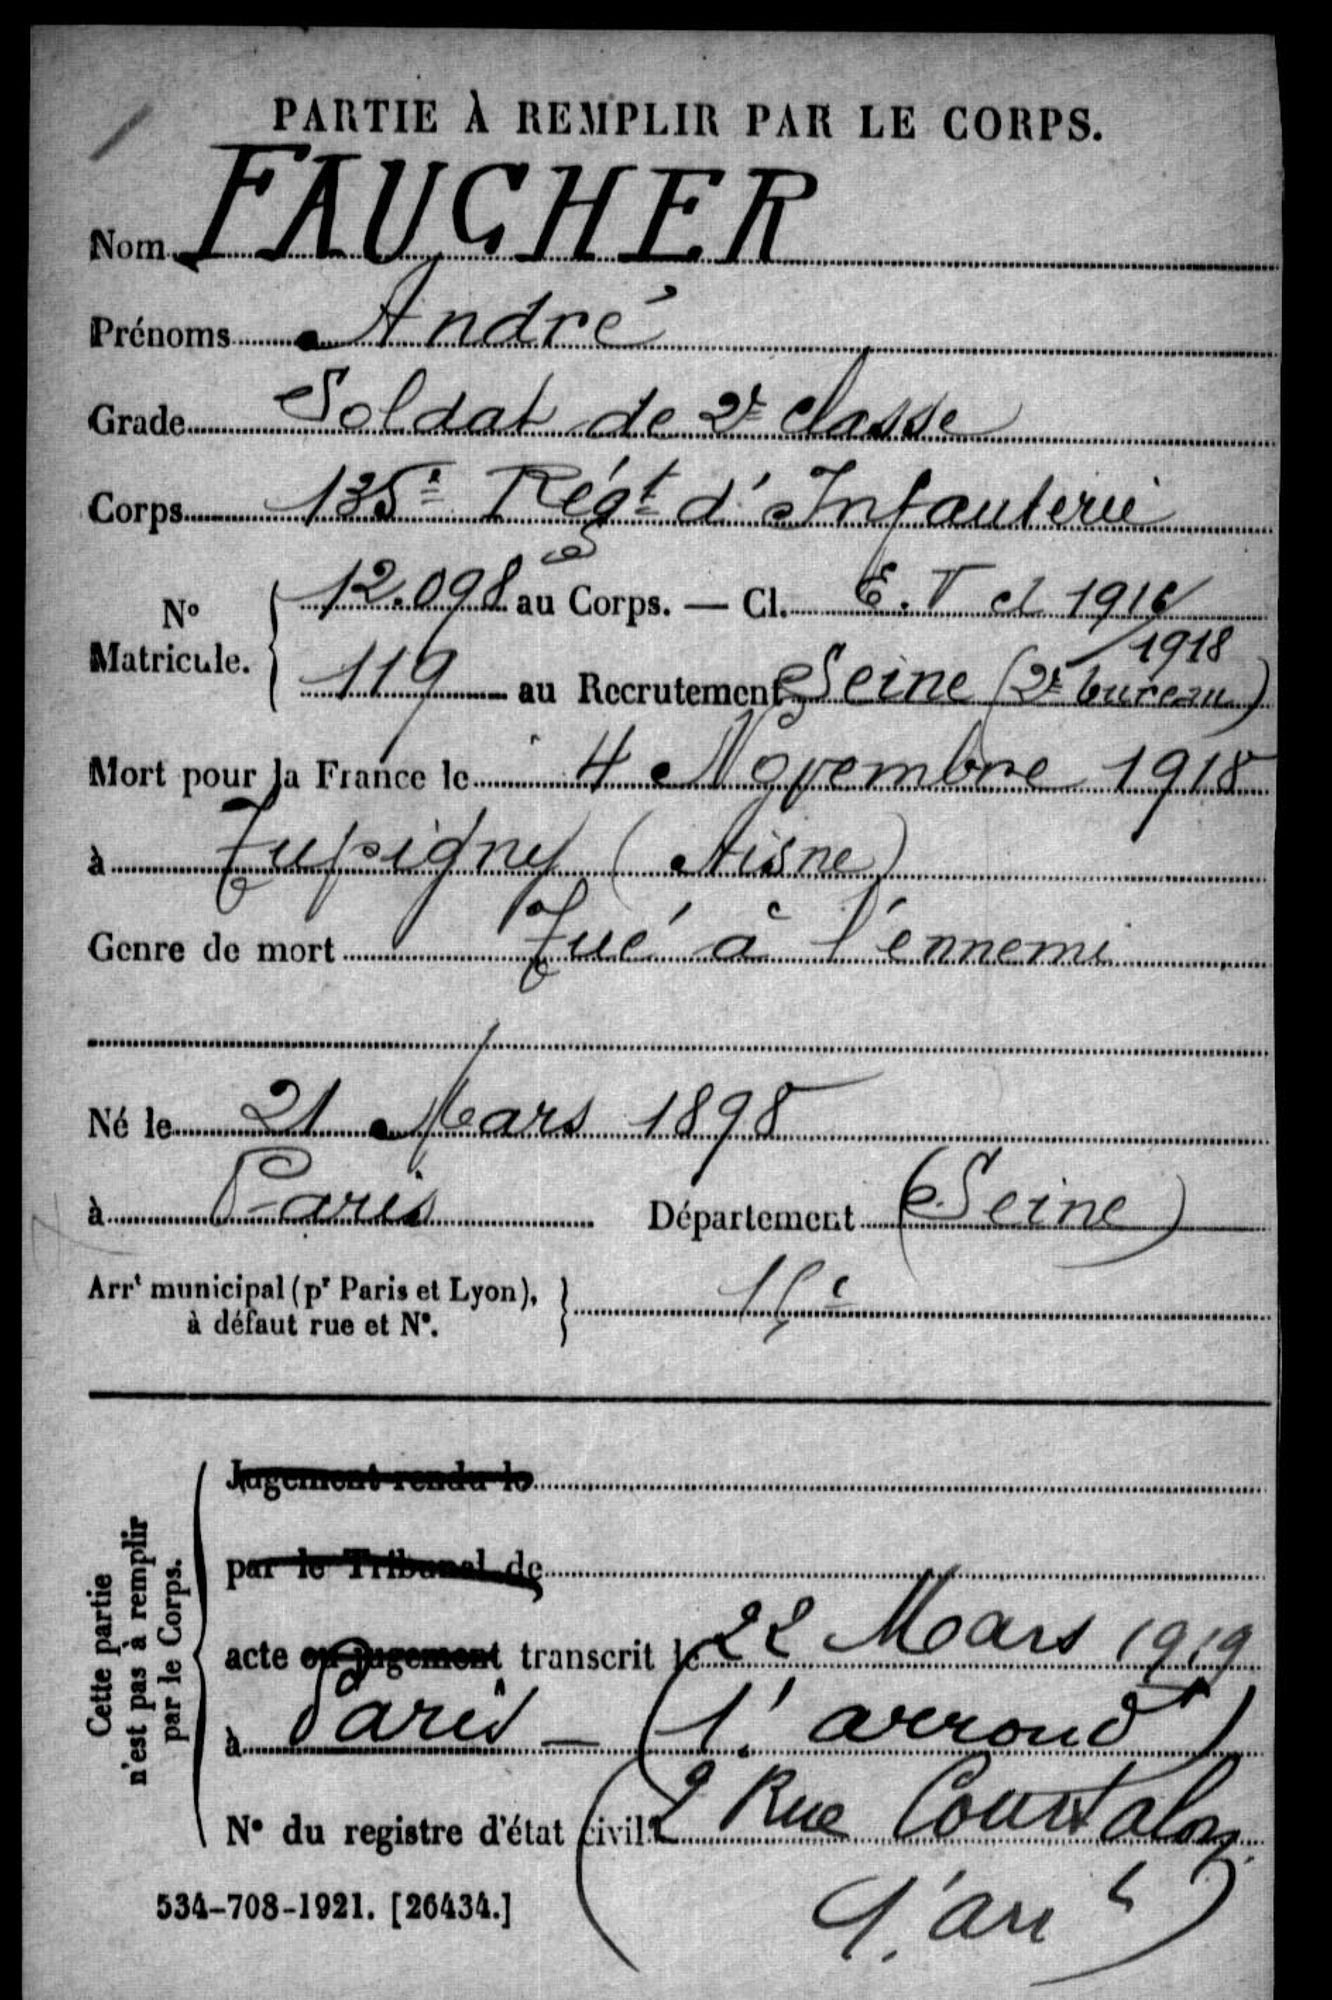 PARTIE À REMPLIR PAR LE CORPS.
Nom FAUCHER
Prénoms André
Grade Soldat de 2e classe
Corps 135e Régt d'Infanterie
No Matricule. { 12.098 au Corps. — Cl. E.V cl 1916/1918
119 au Recrutement Seine (2e bureau)
Mort pour la France le 4 Novembre 1918
à Tupigny (Aisne)
Genre de mort Tué à l'ennemi
Né le 21 Mars 1898
à Paris Département (Seine)
Arrt municipal (pr Paris et Lyon), à défaut rue et No. }
Cette partie n'est pas à remplir par le Corps.
Jugement rendu le
par le Tribunal de
acte ou jugement transcrit le 22 Mars 1919
à Paris – (1. arrondt)
No du registre d'état civil (2 Rue Courtalon
1. arrt)
534-708-1921. [26434.]